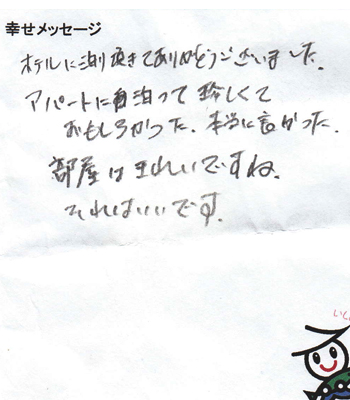 幸せメッセージ
ホテルに泊り頂きてありがとうございました。
アパートに泊って珍しくて
おもしろかった。本当に言かった。
部屋はきれいですね。
それはいいです。